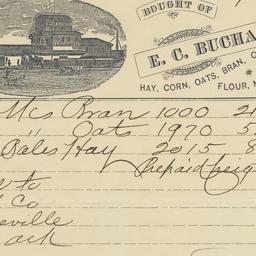 BOUGHT OF
E. C. BUCHA
HAY, CORN, OATS, BRAN, C
FLOUR, M
Bran 1000 2
" Oats 1970 5
Bales Hay 2015 8
Prepaid freig
to
Co
eville
ark